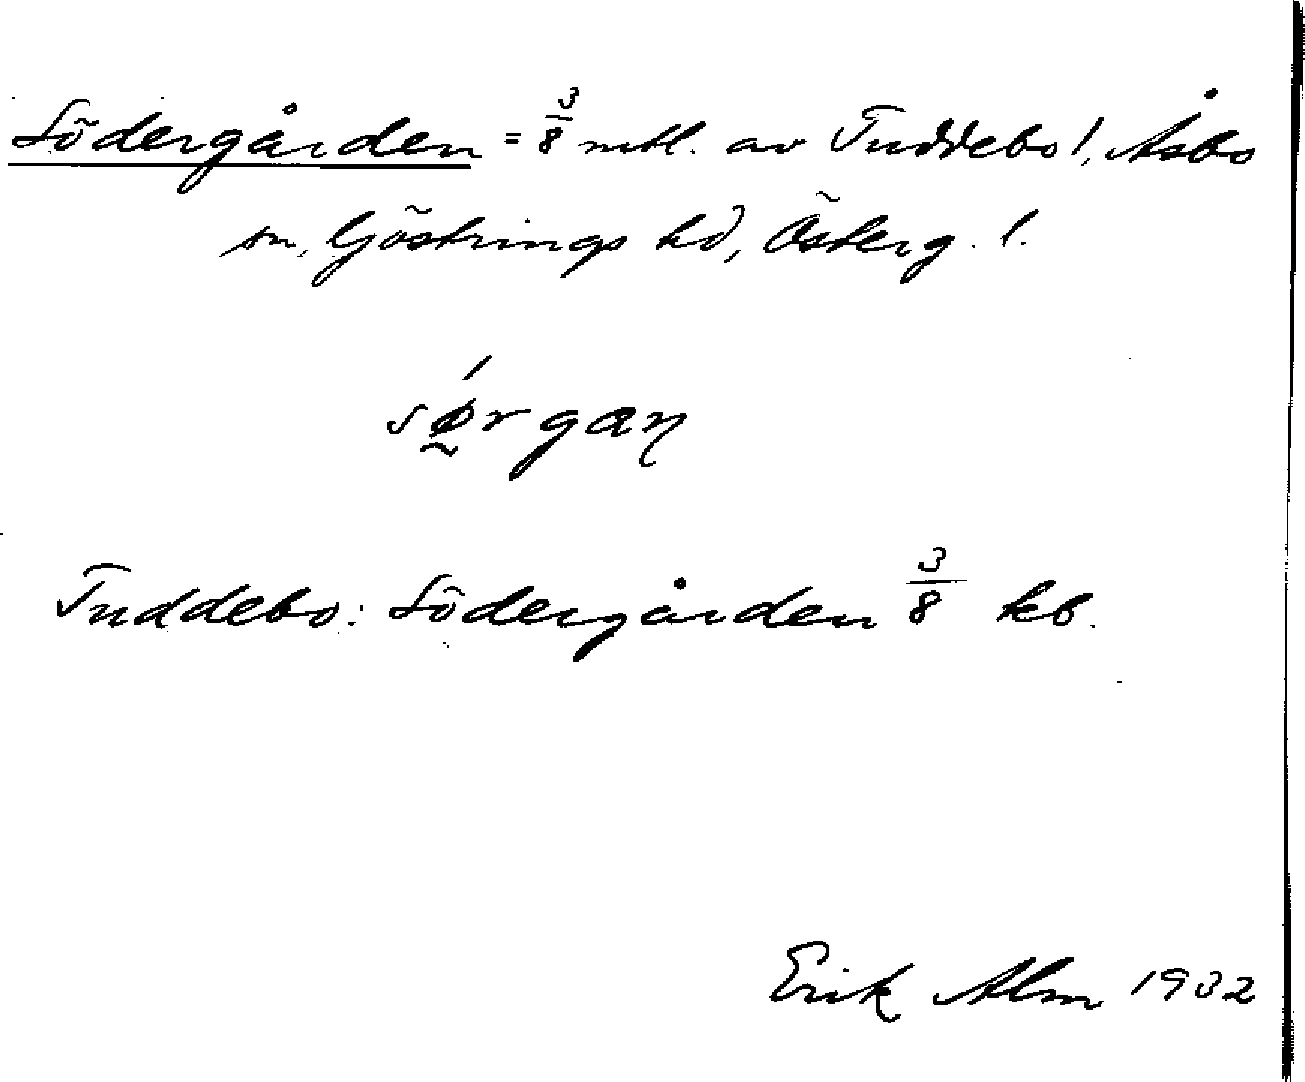 Södergården = 3/8 mtl. av Tuddebo 1, Åsbo
sn, Göstrings hd, Österg. l.
sǿ̰rgaꞑ
Tuddebo: Södergården 3/8 kb.
Erik Alm 1932